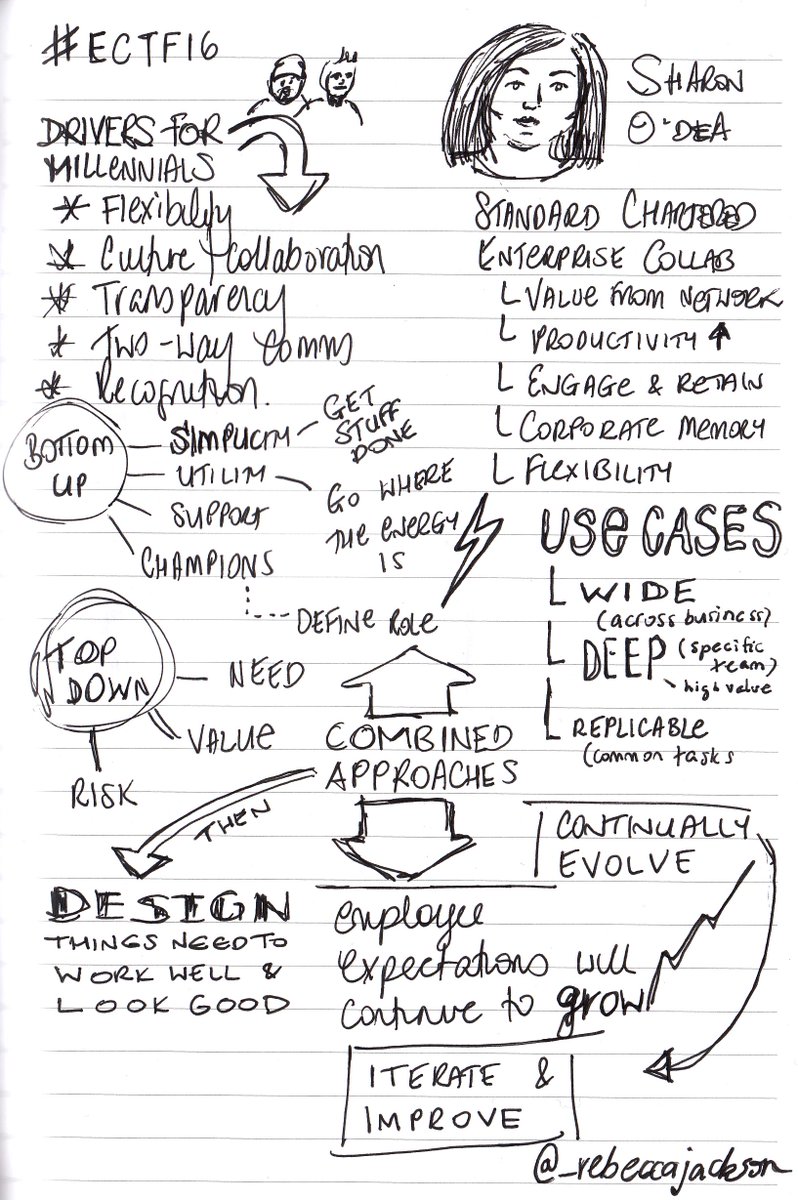 #ECTF16
DRIVERS FOR
MILLENNIALS
* Flexibility
* Culture + collaboration
* Transparency
* Two-way comms
* Recognition.
SHARON
O'DEA
STANDARD CHARTERED
ENTERPRISE COLLAB
VALUE FROM NETWORK
PRODUCTIVITY ↑
ENGAGE & RETAIN
CORPORATE MEMORY
FLEXIBILITY
BOTTOM
UP
SIMPLICITY
UTILITY
SUPPORT
CHAMPIONS
GET
STUFF
DONE
GO WHERE
THE ENERGY
IS
DEFINE ROLE
USE CASES
WIDE
(across business)
DEEP (specific
team)
high value
REPLICABLE
(common tasks
TOP
DOWN
NEED
VALUE
RISK
COMBINED
APPROACHES
THEN
DESIGN
THINGS NEED TO
WORK WELL &
LOOK GOOD
CONTINUALLY
EVOLVE
employee
expectations will
continue to grow
ITERATE &
IMPROVE
@_rebeccajackson